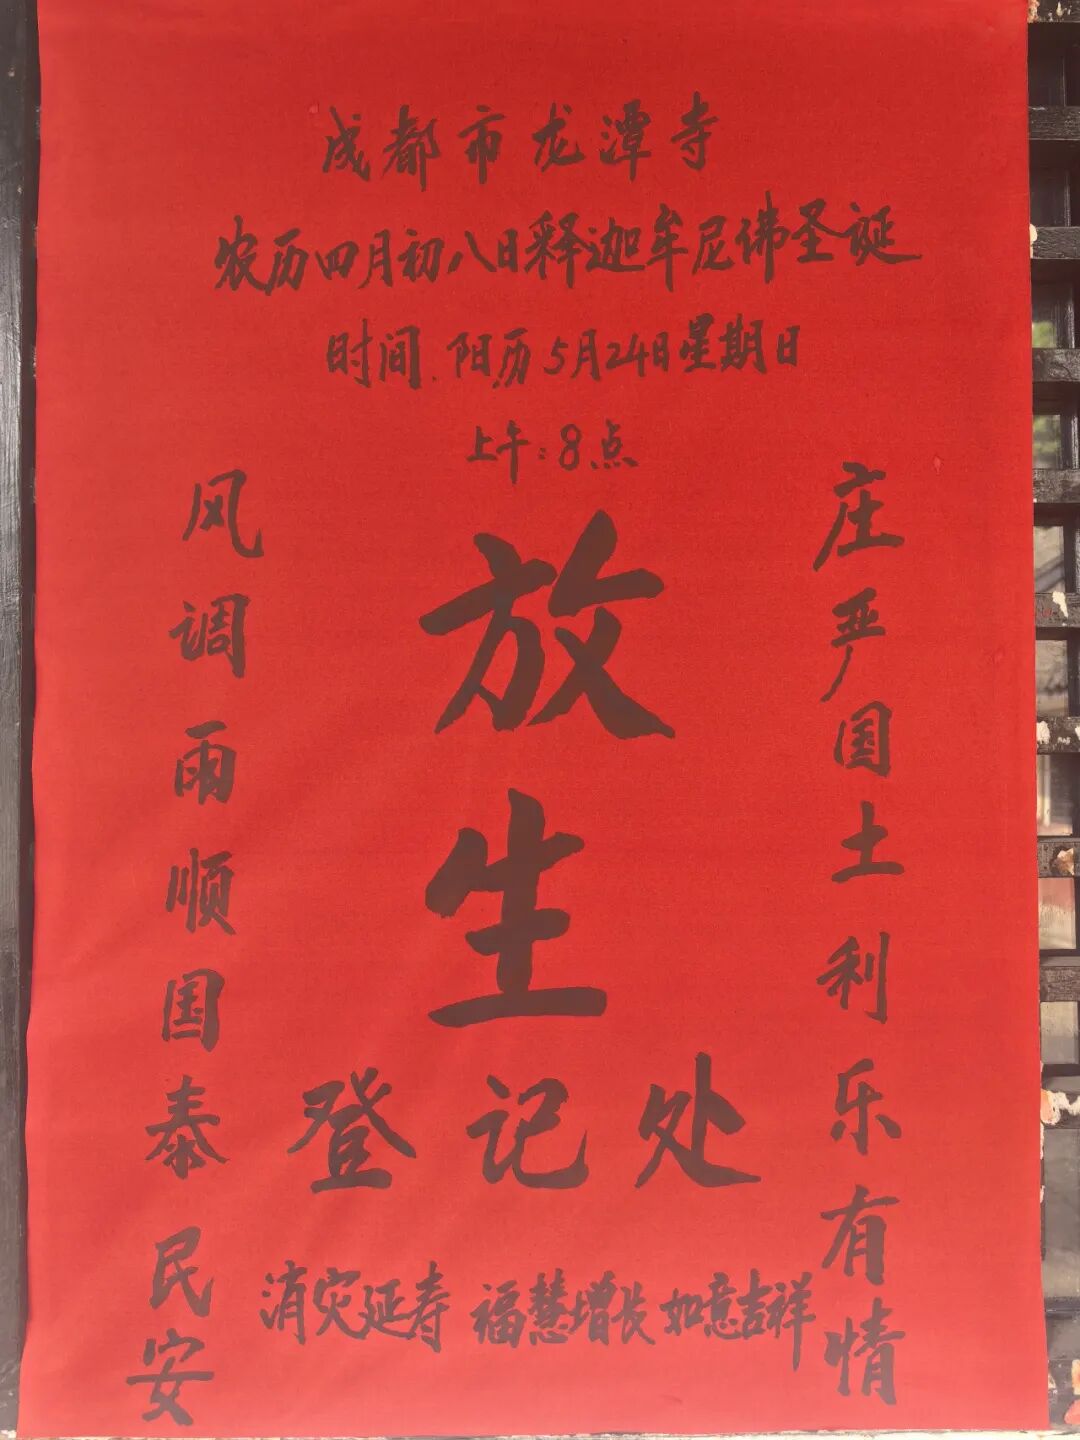 成都市龙潭寺
农历四月初八日释迦牟尼佛圣诞
时间.阳历5月24日星期日
上午:8点
庄严国土利乐有情
放生
登记处
风调雨顺国泰民安
消灾延寿 福慧增长 如意吉祥